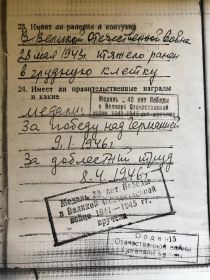 23. Имеет ли ранения и контузии
В Великой Отечественной войне
28 мая 1943г. тяжело ранен
в грудную клетку
24. Имеет ли правительственные награды
и какие
медали:
Медаль „40 лет Победы
в Великой Отечественной
войне 1941-1945 гг."
вручена
За победу над Германией
9.I.1946г.
За доблестный труд
8.4.1946г.
Медаль 30 лет Победы
в Великой Отечественной
войне 1941-1945 гг.
вручена
Орден
Отечественной войны